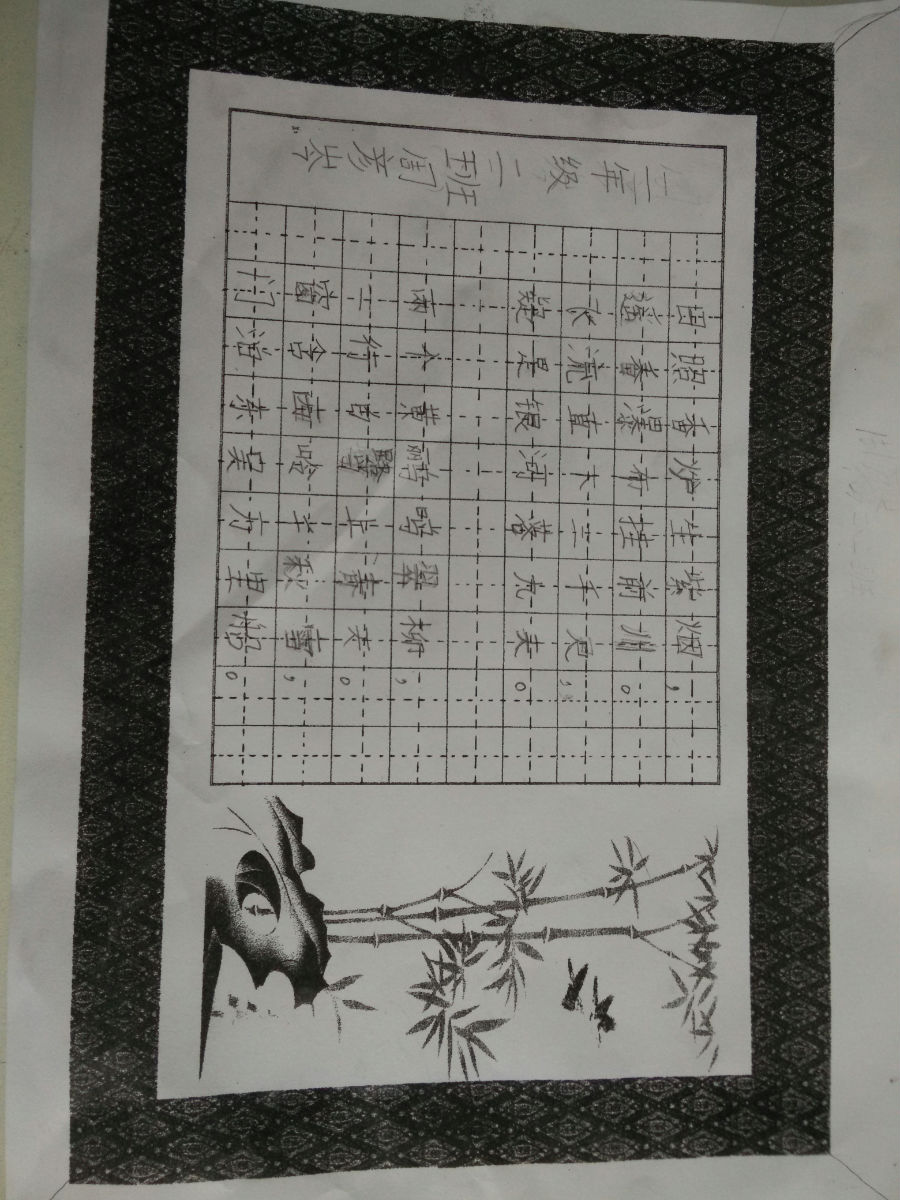 三年级二班周彦岑
日照香炉生紫烟，
遥看瀑布挂前川。
飞流直下三千尺，
疑是银河落九天。
两个黄鹂鸣翠柳，
一行白鹭上青天。
窗含西岭千秋雪，
门泊东吴万里船。